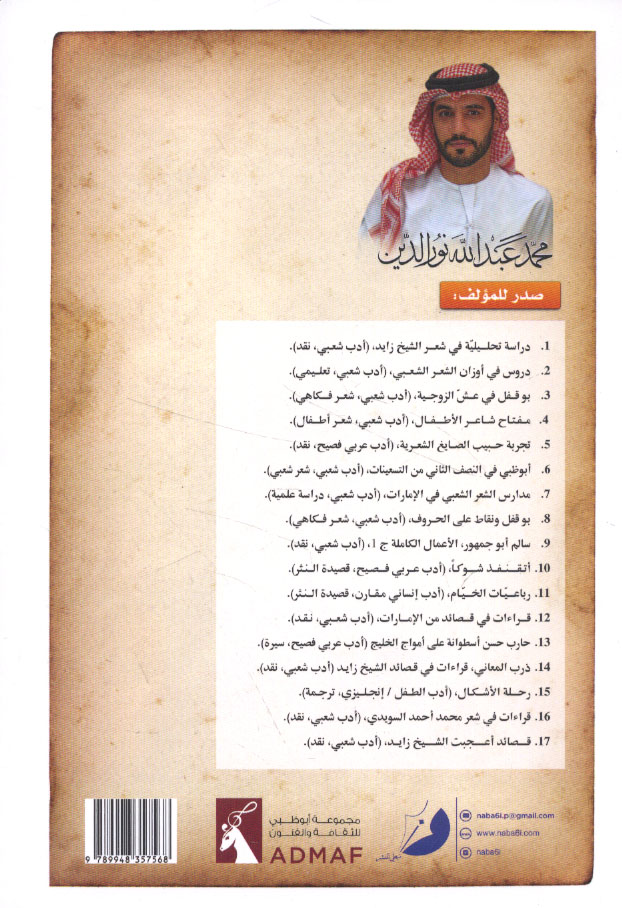 محمد عبدالله نورالدين
صدر للمؤلف:
1. دراسة تحلـيليّة في شعـر الشيخ زايد، (أدب شعبي، نقد).
2. دروس في أوزان الشعـر الشعبـي، (أدب شعبي، تعليمي).
3. بو قـفل في عـشّ الزوجـية، (أدب شعبي، شعر فـكاهي).
4. مـفـتاح شـاعـر الأطـفـال، (أدب شعبي، شعر أطـفال).
5. تجربة حـبيب الصايغ الشعرية، (أدب عربي فصيح، نقد).
6. أبوظبي في النصف الثاني من التسعينات، (أدب شعبي، شعر شعبي).
7. مدارس الشعر الشعبي في الإمارات، (أدب شعبي، دراسة علمية).
8. بو قفل ونقاط على الحروف، (أدب شعبي، شعر فـكاهي).
9. سالم أبو جمهور، الأعمال الكاملة ج 1، (أدب شعبي، نقد).
10. أتـقـنـفـذ شـوكـاً، (أدب عـربي فـصيح، قصيدة الـنـثر).
11. رباعـيّـات الخـيّـام، (أدب إنساني مقـارن، قصيدة النثر).
12. قـراءات في قـصائد من الإمـارات، (أدب شعـبي، نـقـد).
13. حارب حسن أسطوانة على أمواج الخليج (أدب عربي فصيح، سيرة).
14. ذرب المعاني، قراءات في قصائد الشيخ زايـد (أدب شعبي، نقد).
15. رحـلـة الأشـكـال، (أدب الطـفل / إنجلـيزي، ترجمة).
16. قراءات في شعر محمد أحمد السويدي، (أدب شعبي، نقد).
17. قـصائد أعـجبت الشـيخ زايـد، (أدب شعبي، نقد).
9 789948 357568
مجموعـة أبوظـبي
للثقافـة والفنـون
ADMAF
نبطي للنشر
naba6i.p@gmail.com
www.naba6i.com
naba6i